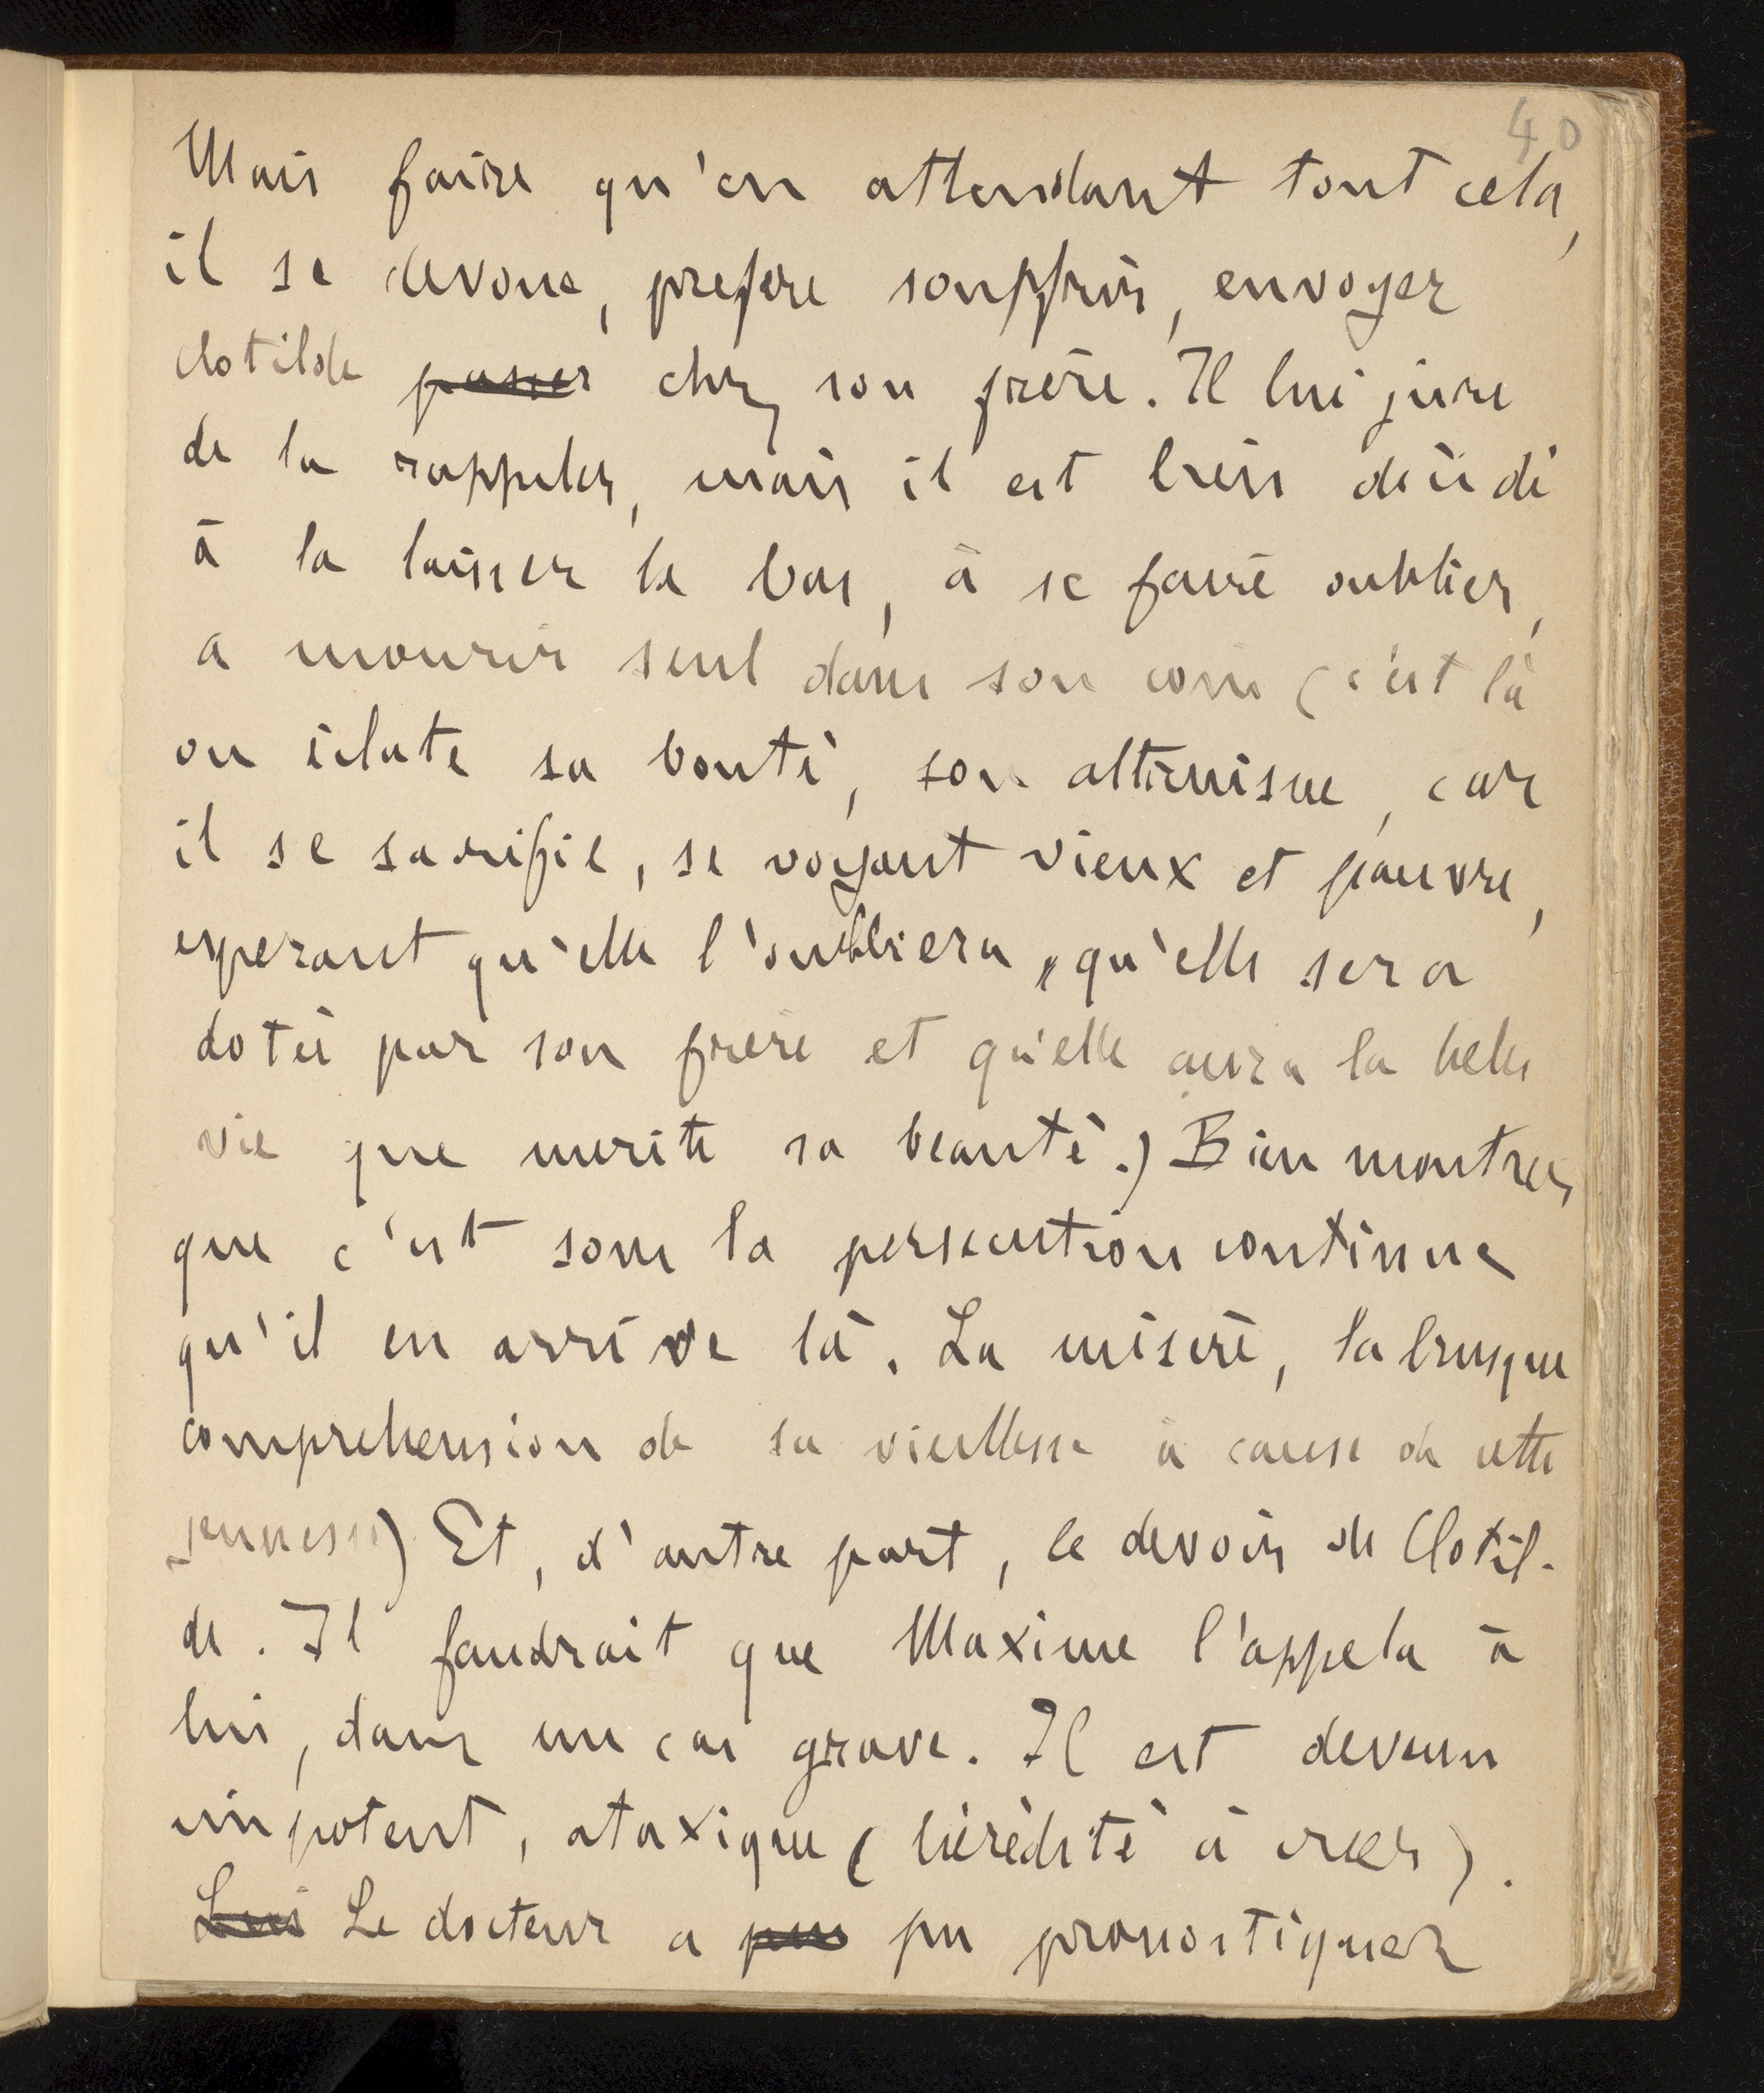 40
Mais faire qu'en attendant tout cela,
il se devoue, prefere souffrir, envoyer
Clotilde passer chez son frère. Il lui jure
de la rappeler, mais il est bien décidé
à la laisser la bas, à se faire oublier,
a mourir seul dans son coin (c'est là
ou éclate sa bonté, son altruisme, car
il se sacrifie, se voyant vieux et pauvre,
esperant qu'elle l'oubliera, qu'elle sera
dotée par son frère et qu'elle aura la belle
vie que merite sa beauté.) Bien montrer
que c'est sous la persecution continue
qu'il en arrive là. La misère, la brusque
comprehension de sa vieillesse à cause de cette
jeunesse) Et, d'autre part, le devoir de Clotil-
de. Il faudrait que Maxime l'appela à
lui, dans un cas grave. Il est devenu
impotent, ataxique (hérédité à créer).
Lui Le docteur a pu pronostiquer